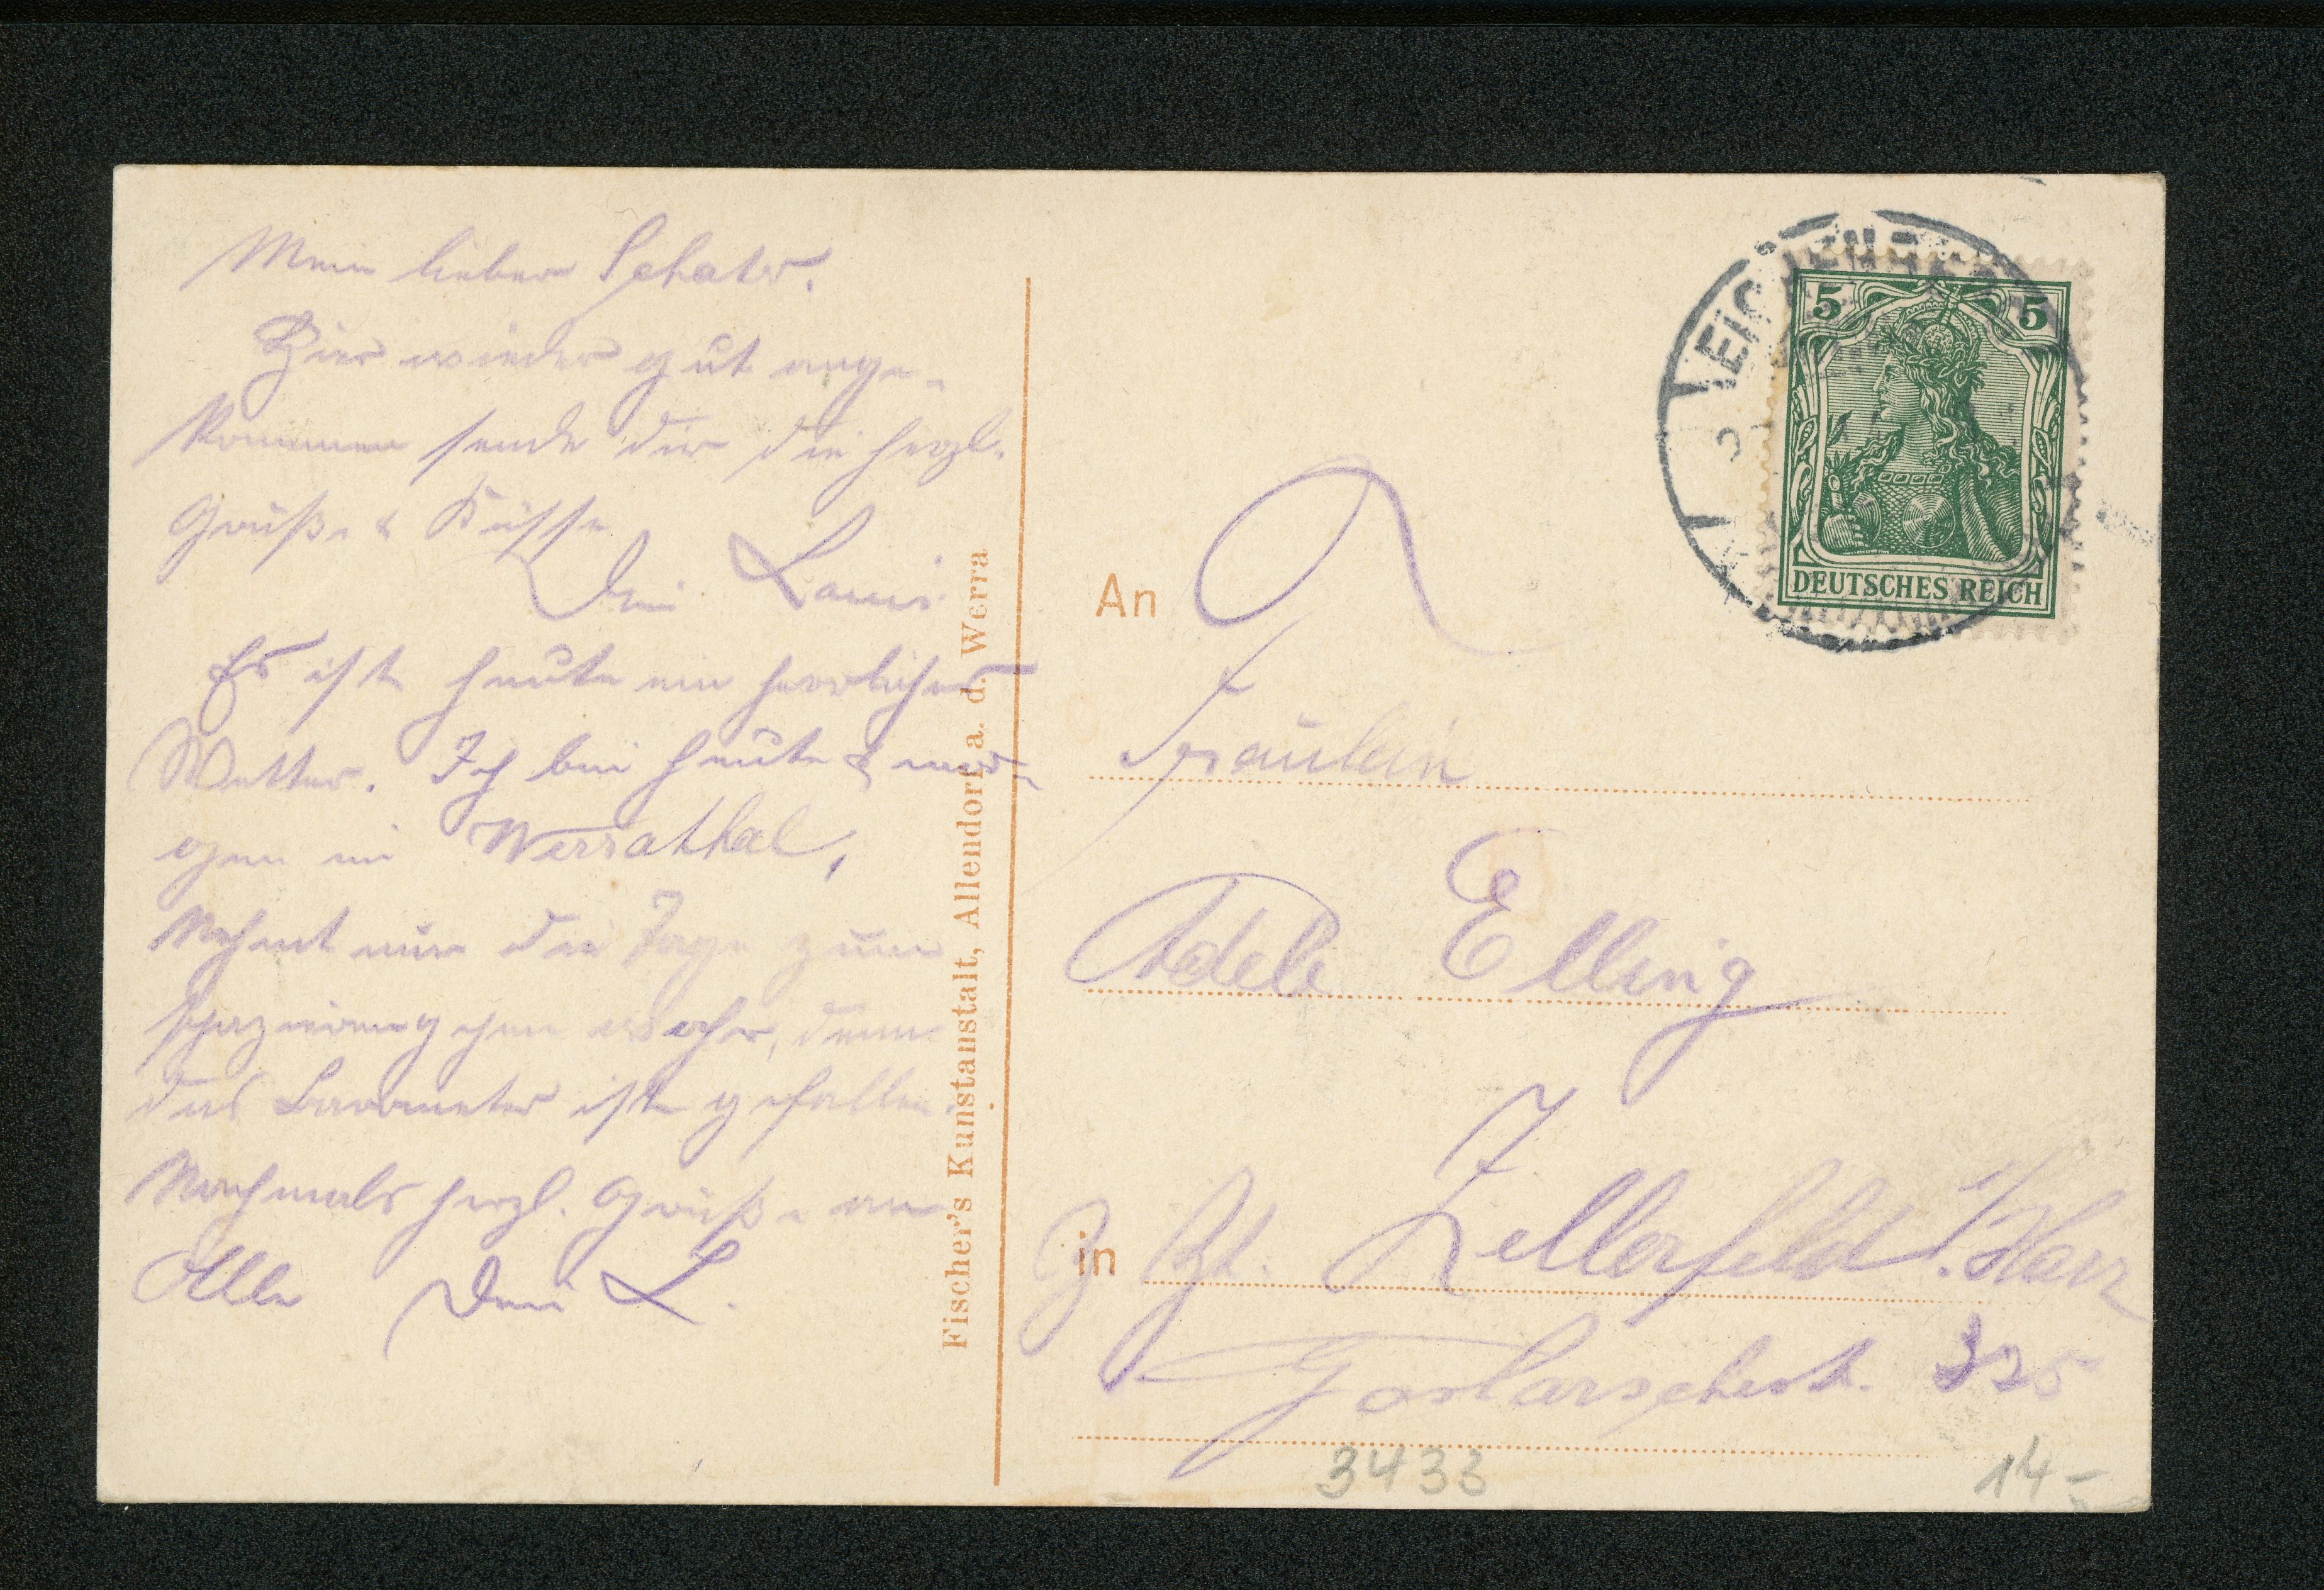 Mein lieber Schatz.
Hier wieder gut ange-
kommen sende dir die herzl.
Grüße & Küsse
Dein Louis
Es ist heute ein herrliches
Wetter. Ich bin heute & mor-
gen im Werrathal,
Nehmt nur die Tage zum
spazierengehen, denn
das Barometer ist gefallen
Nochmals herzl. Grüße an
Alle Dein L.
Fischer's Kunstanstalt, Allendorf a. d. Werra
5 5
DEUTSCHES REICH
An
Fräulein
Adele Elling
in
z Zt. Zellerfeld i/Harz
Goslarschestr. 325
3433
14-